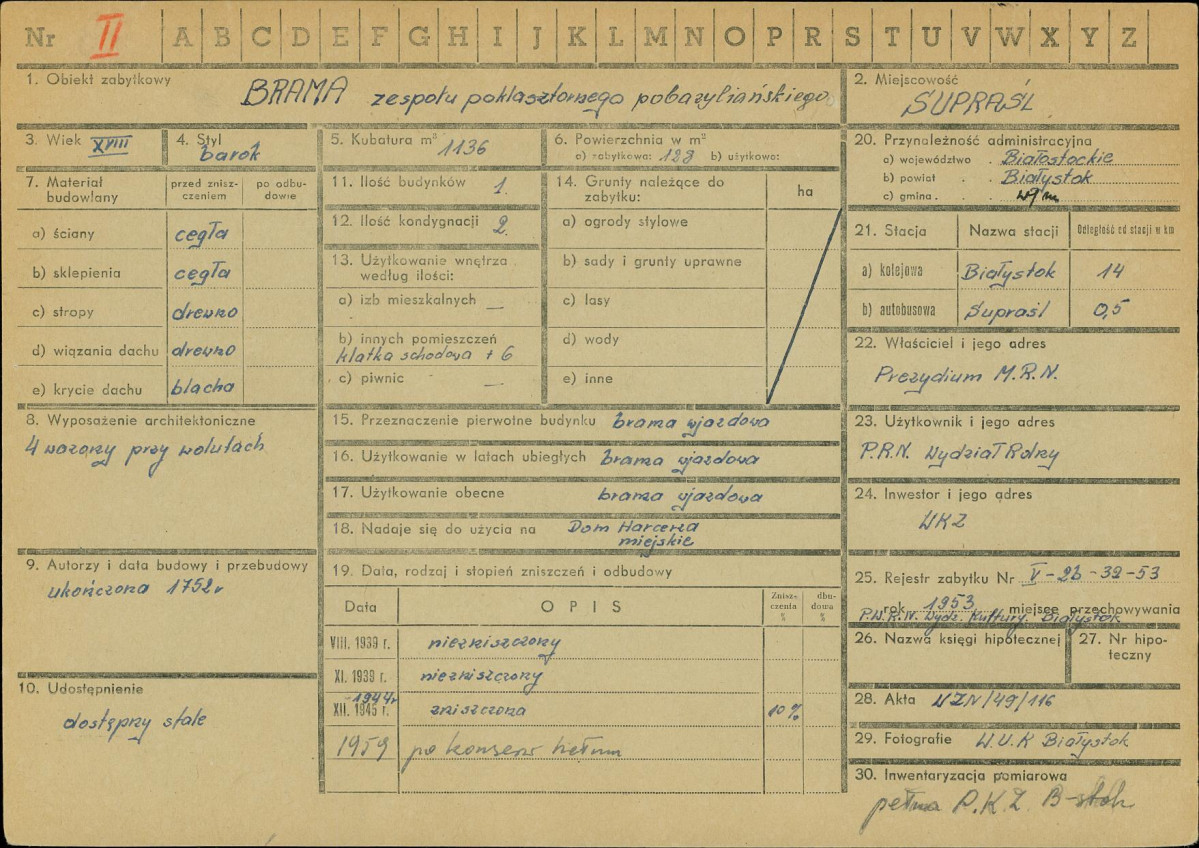 Nr II A B C D E F G H I J K L M N O P R S T U V W X Y Z
1. Obiekt zabytkowy BRAMA zespołu poklasztornego pobazyliańskiego
2. Miejscowość SUPRAŚL
3. Wiek XVIII
4. Styl barok
5. Kubatura m³ 1136
6. Powierzchnia w m²
a) zabytkowa: 123 b) użytkowa:
7. Materiał budowlany
przed zniszczeniem
po odbudowie
a) ściany cegła
b) sklepienia cegła
c) stropy drewno
d) wiązania dachu drewno
e) krycie dachu blacha
8. Wyposażenie architektoniczne
4 wazony przy wolutach
9. Autorzy i data budowy i przebudowy
ukończona 1752r
10. Udostępnienie
dostępny stale
11. Ilość budynków 1.
12. Ilość kondygnacji 2.
13. Użytkowanie wnętrza
według ilości:
a) izb mieszkalnych —
b) innych pomieszczeń
klatka schodowa + 6
c) piwnic —
14. Grunty należące do
zabytku: ha
a) ogrody stylowe
b) sady i grunty uprawne
c) lasy
d) wody
e) inne
15. Przeznaczenie pierwotne budynku brama wjazdowa
16. Użytkowanie w latach ubiegłych brama wjazdowa
17. Użytkowanie obecne brama wjazdowa
18. Nadaje się do użycia na Dom Harcerza
miejskie
19. Data, rodzaj i stopień zniszczeń i odbudowy
Data OPIS Znisz-
czenia
% dbu-
dowa
%
VIII. 1939 r. niezniszczony
XI. 1939 r. niezniszczony
-1944r
XII. 1945 r. zniszczona 10%
1959 po konserw
20. Przynależność administracyjna
a) województwo . Białostockie
b) powiat . . Białystok
c) gmina . .
21. Stacja Nazwa stacji Odległość od stacji w km
a) kolejowa Białystok 14
b) autobusowa Supraśl 0,5
22. Właściciel i jego adres
Prezydium M.R.N.
23. Użytkownik i jego adres
P.R.N. Wydział Rolny
24. Inwestor i jego adres
WKZ
25. Rejestr zabytku Nr V-2b-32-53
rok 1953 miejsce przechowywania
P.W.R.N. Wydz. Kultury. Białystok
26. Nazwa księgi hipotecznej
27. Nr hipo-
teczny
28. Akta WZN/49/116
29. Fotografie W.U.K Białystok
30. Inwentaryzacja pomiarowa
pełna P.K.Z. B-stok